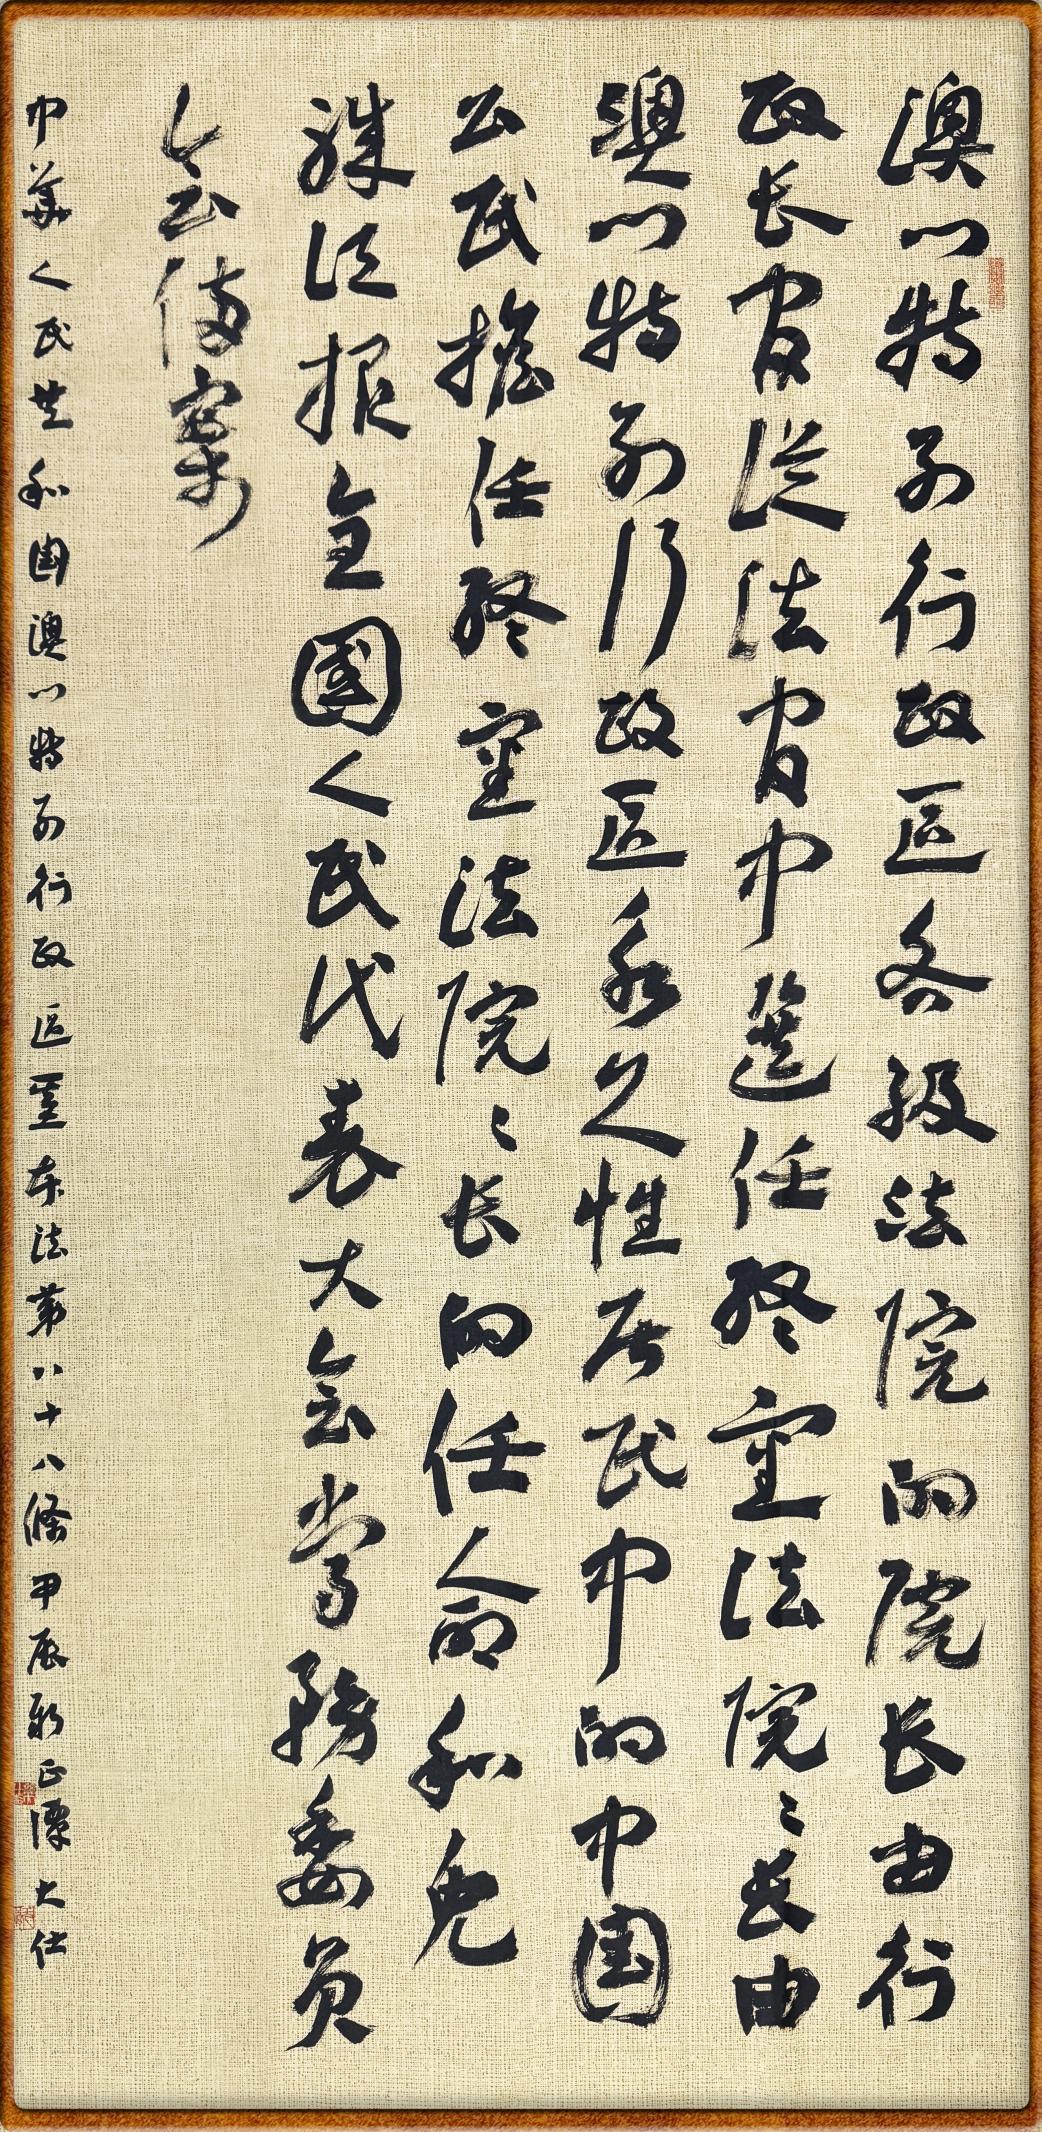 澳门特别行政区各级法院的院长由行
政长官从法官中选任终审法院々长由
澳门特别行政区永久性居民中的中国
公民担任终审法院々长的任命和免
殊须报全国人民代表大会常务委员
会备案
中华人民共和国澳门特别行政区基本法第八十八条甲辰新正谭大仕